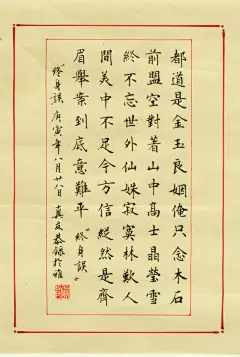 都道是金玉良姻俺只念木石
前盟空對着山中高士晶瑩雪
終不忘世外仙姝寂寞林歎人
間美中不足今方信縱然是齊
眉舉案到底意難平 “終身誤”
“終身誤” 庚寅年八月廿八日 真友恭錄於雅